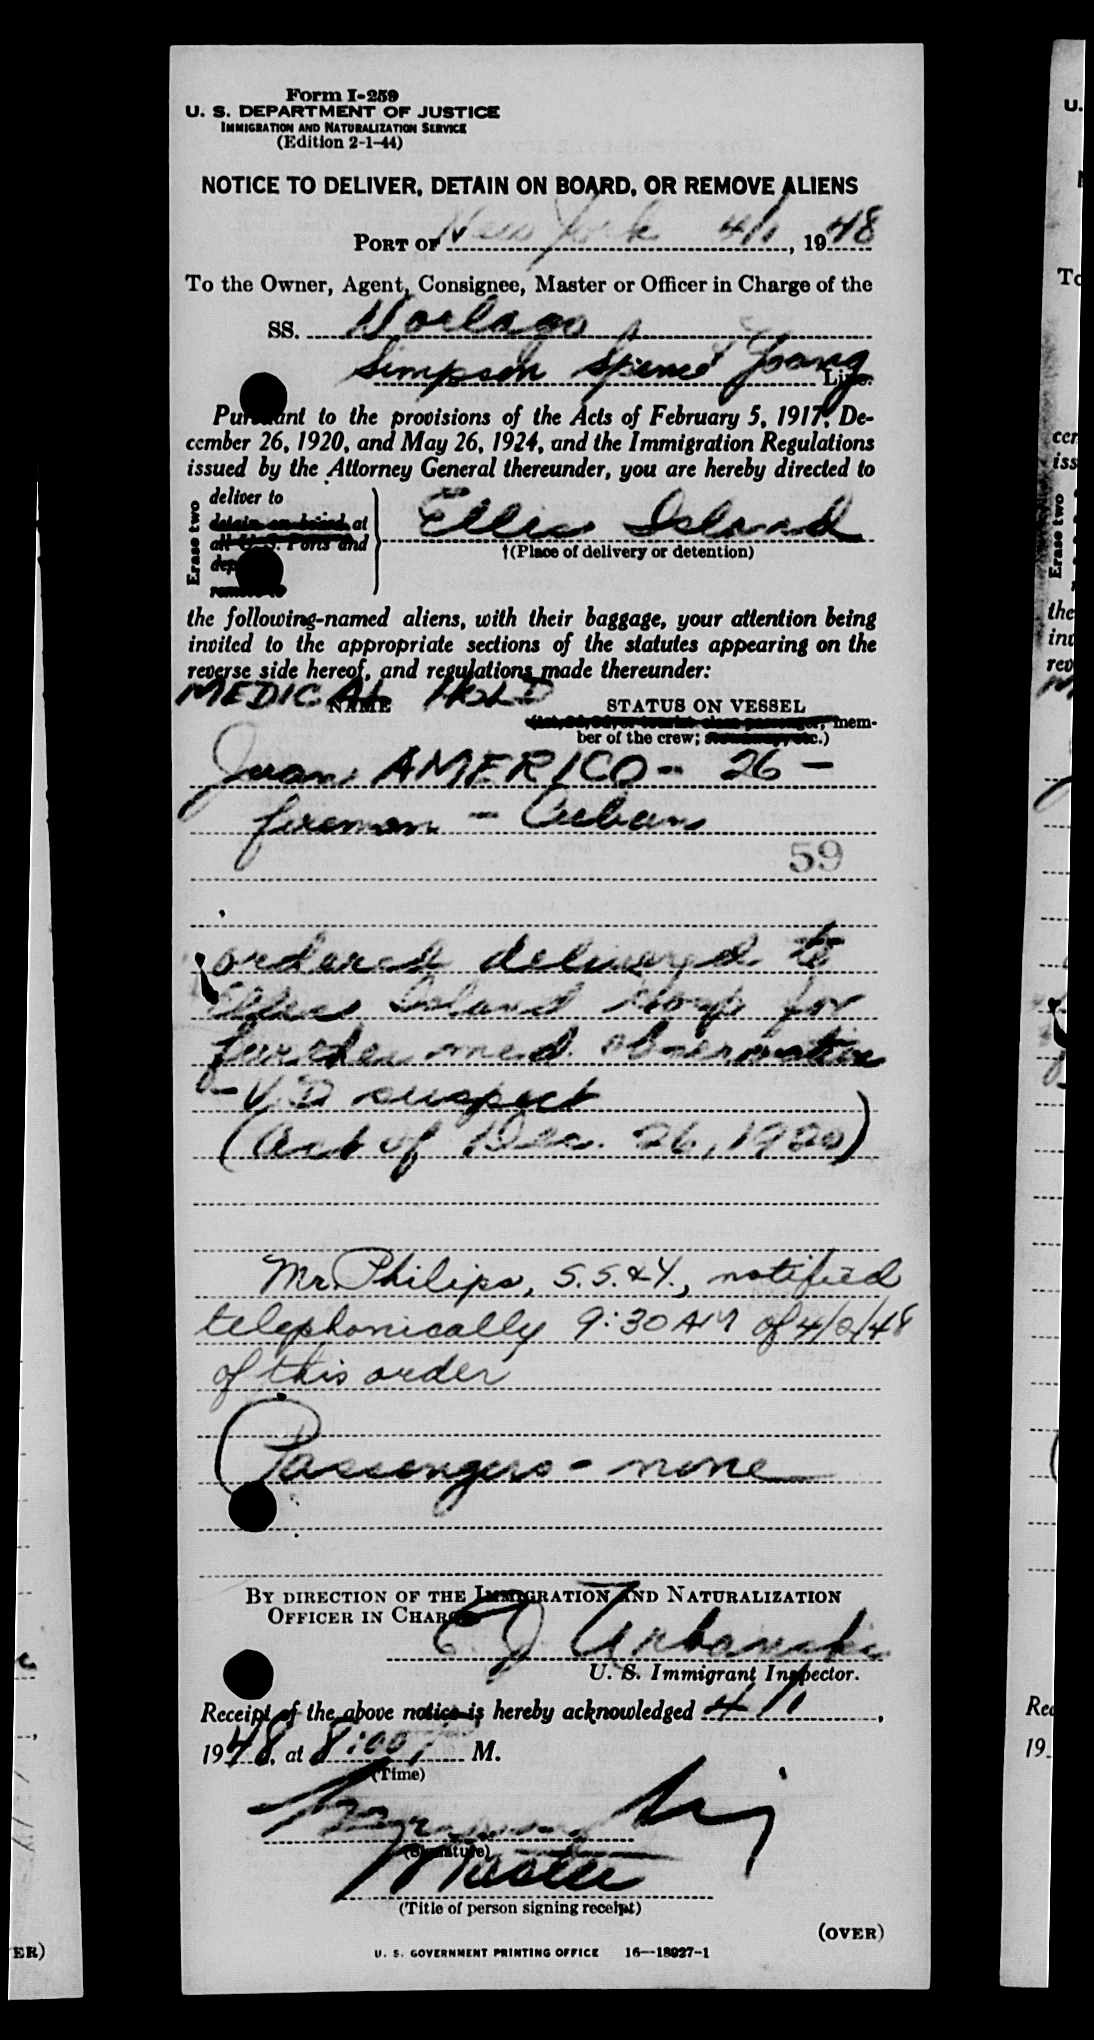 Form I-259
U. S. DEPARTMENT OF JUSTICE
IMMIGRATION AND NATURALIZATION SERVICE
(Edition 2-1-44)
NOTICE TO DELIVER, DETAIN ON BOARD, OR REMOVE ALIENS
PORT OF New York 4/1, 1948
To the Owner, Agent, Consignee, Master or Officer in Charge of the
SS. Norlago
Simpson Spence & Young Line.
Pursuant to the provisions of the Acts of February 5, 1917, De-
cember 26, 1920, and May 26, 1924, and the Immigration Regulations
issued by the Attorney General thereunder, you are hereby directed to
Erase two
deliver to
detain on board at
all U. S. Ports and
remove to
Ellis Island
†(Place of delivery or detention)
the following-named aliens, with their baggage, your attention being
invited to the appropriate sections of the statutes appearing on the
reverse side hereof, and regulations made thereunder:
MEDICAL HOLD
NAME STATUS ON VESSEL
mem-
ber of the crew; etc.)
Juan AMERICO - 26 -
fireman - Cuban
59
ordered delivered to
Ellis Island Hosp for
further med. observation
- V.D suspect
(Act of Dec. 26, 1920)
Mr. Philips, S.S.&Y., notified
telephonically 9:30 AM of 4/2/48
of this order
Passengers - none
BY DIRECTION OF THE IMMIGRATION AND NATURALIZATION
OFFICER IN CHARGE
E J Urbanski
U. S. Immigrant Inspector.
Receipt of the above notice is hereby acknowledged 4/1,
1948, at 8:00 P M.
(Time)
(Signature)
Master
(Title of person signing receipt)
(OVER)
U. S. GOVERNMENT PRINTING OFFICE 16—18027-1